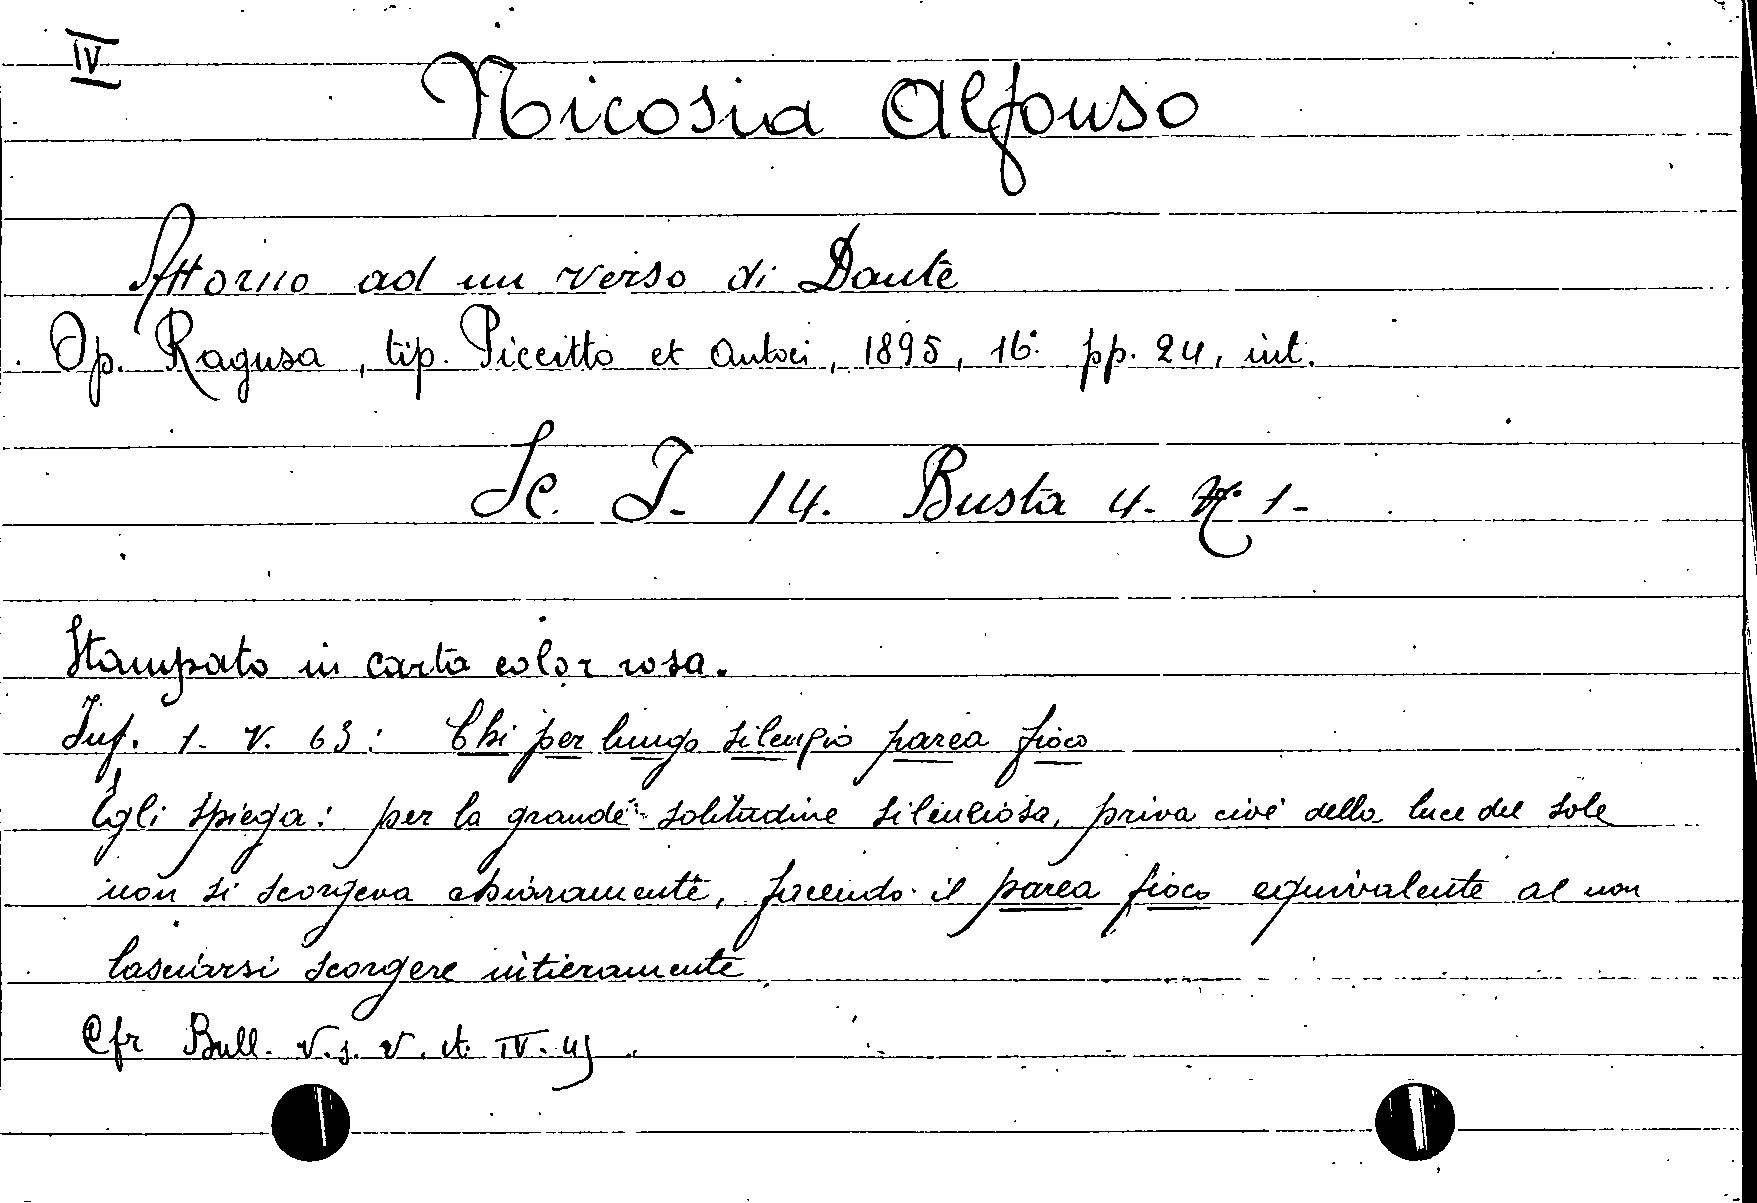 IV
Nicosia Alfonso
Attorno ad un verso di Dante
Op. Ragusa, tip. Piccitto et Antoci, 1895, 16° pp. 24, int.
Sc. I. 14. Busta 4. N° 1-
Stampato in carta color rosa.
Inf. 1. v. 63: Chi per lungo silenzio parea fioco
Egli spiega: per la grande solitudine silenziosa, priva cioè della luce del sole
non si scorgeva chiaramente, facendo il parea fioco equivalente al non
lasciarsi scorgere intieramente.
Cfr Bull. IV.